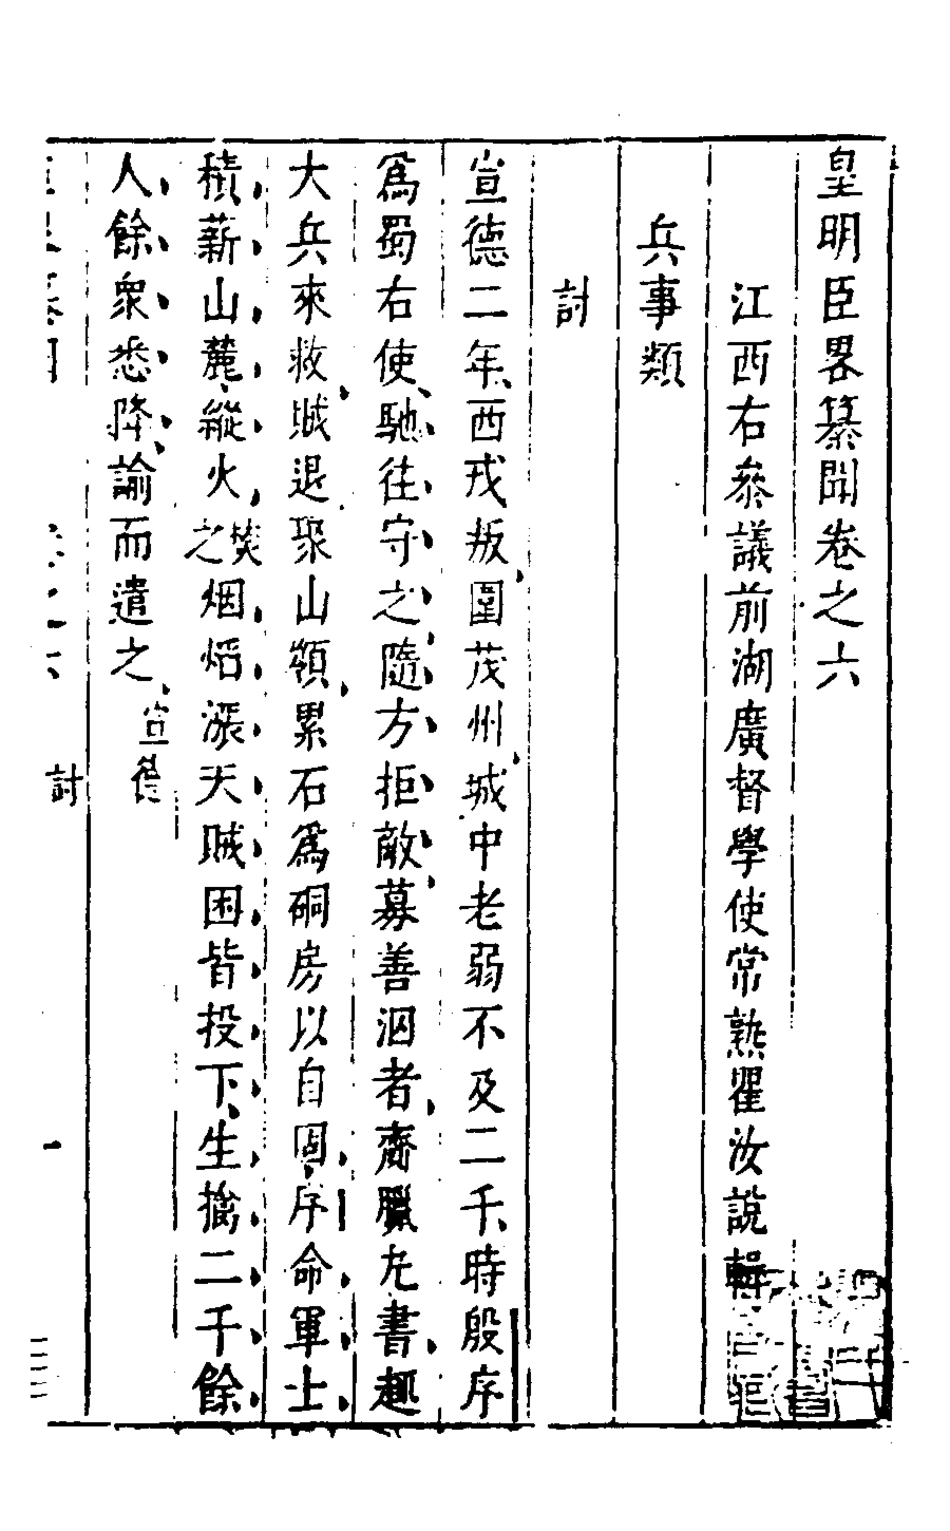 皇明臣畧纂聞卷之六
江西右叅議前湖廣督學使常熟瞿汝說輯
兵事類
討
宣德二年西戎叛圍茂州城中老弱不及二千時殷序
爲蜀右使馳往守之隨方拒敵募善泅者齎臘丸書趣
大兵來救賊退聚山顛累石爲硐房以自固序命軍士
積薪山麓縱火焚之烟熖漲天賊困皆投下生擒二千餘
人餘衆悉降諭而遣之宣德
討
一